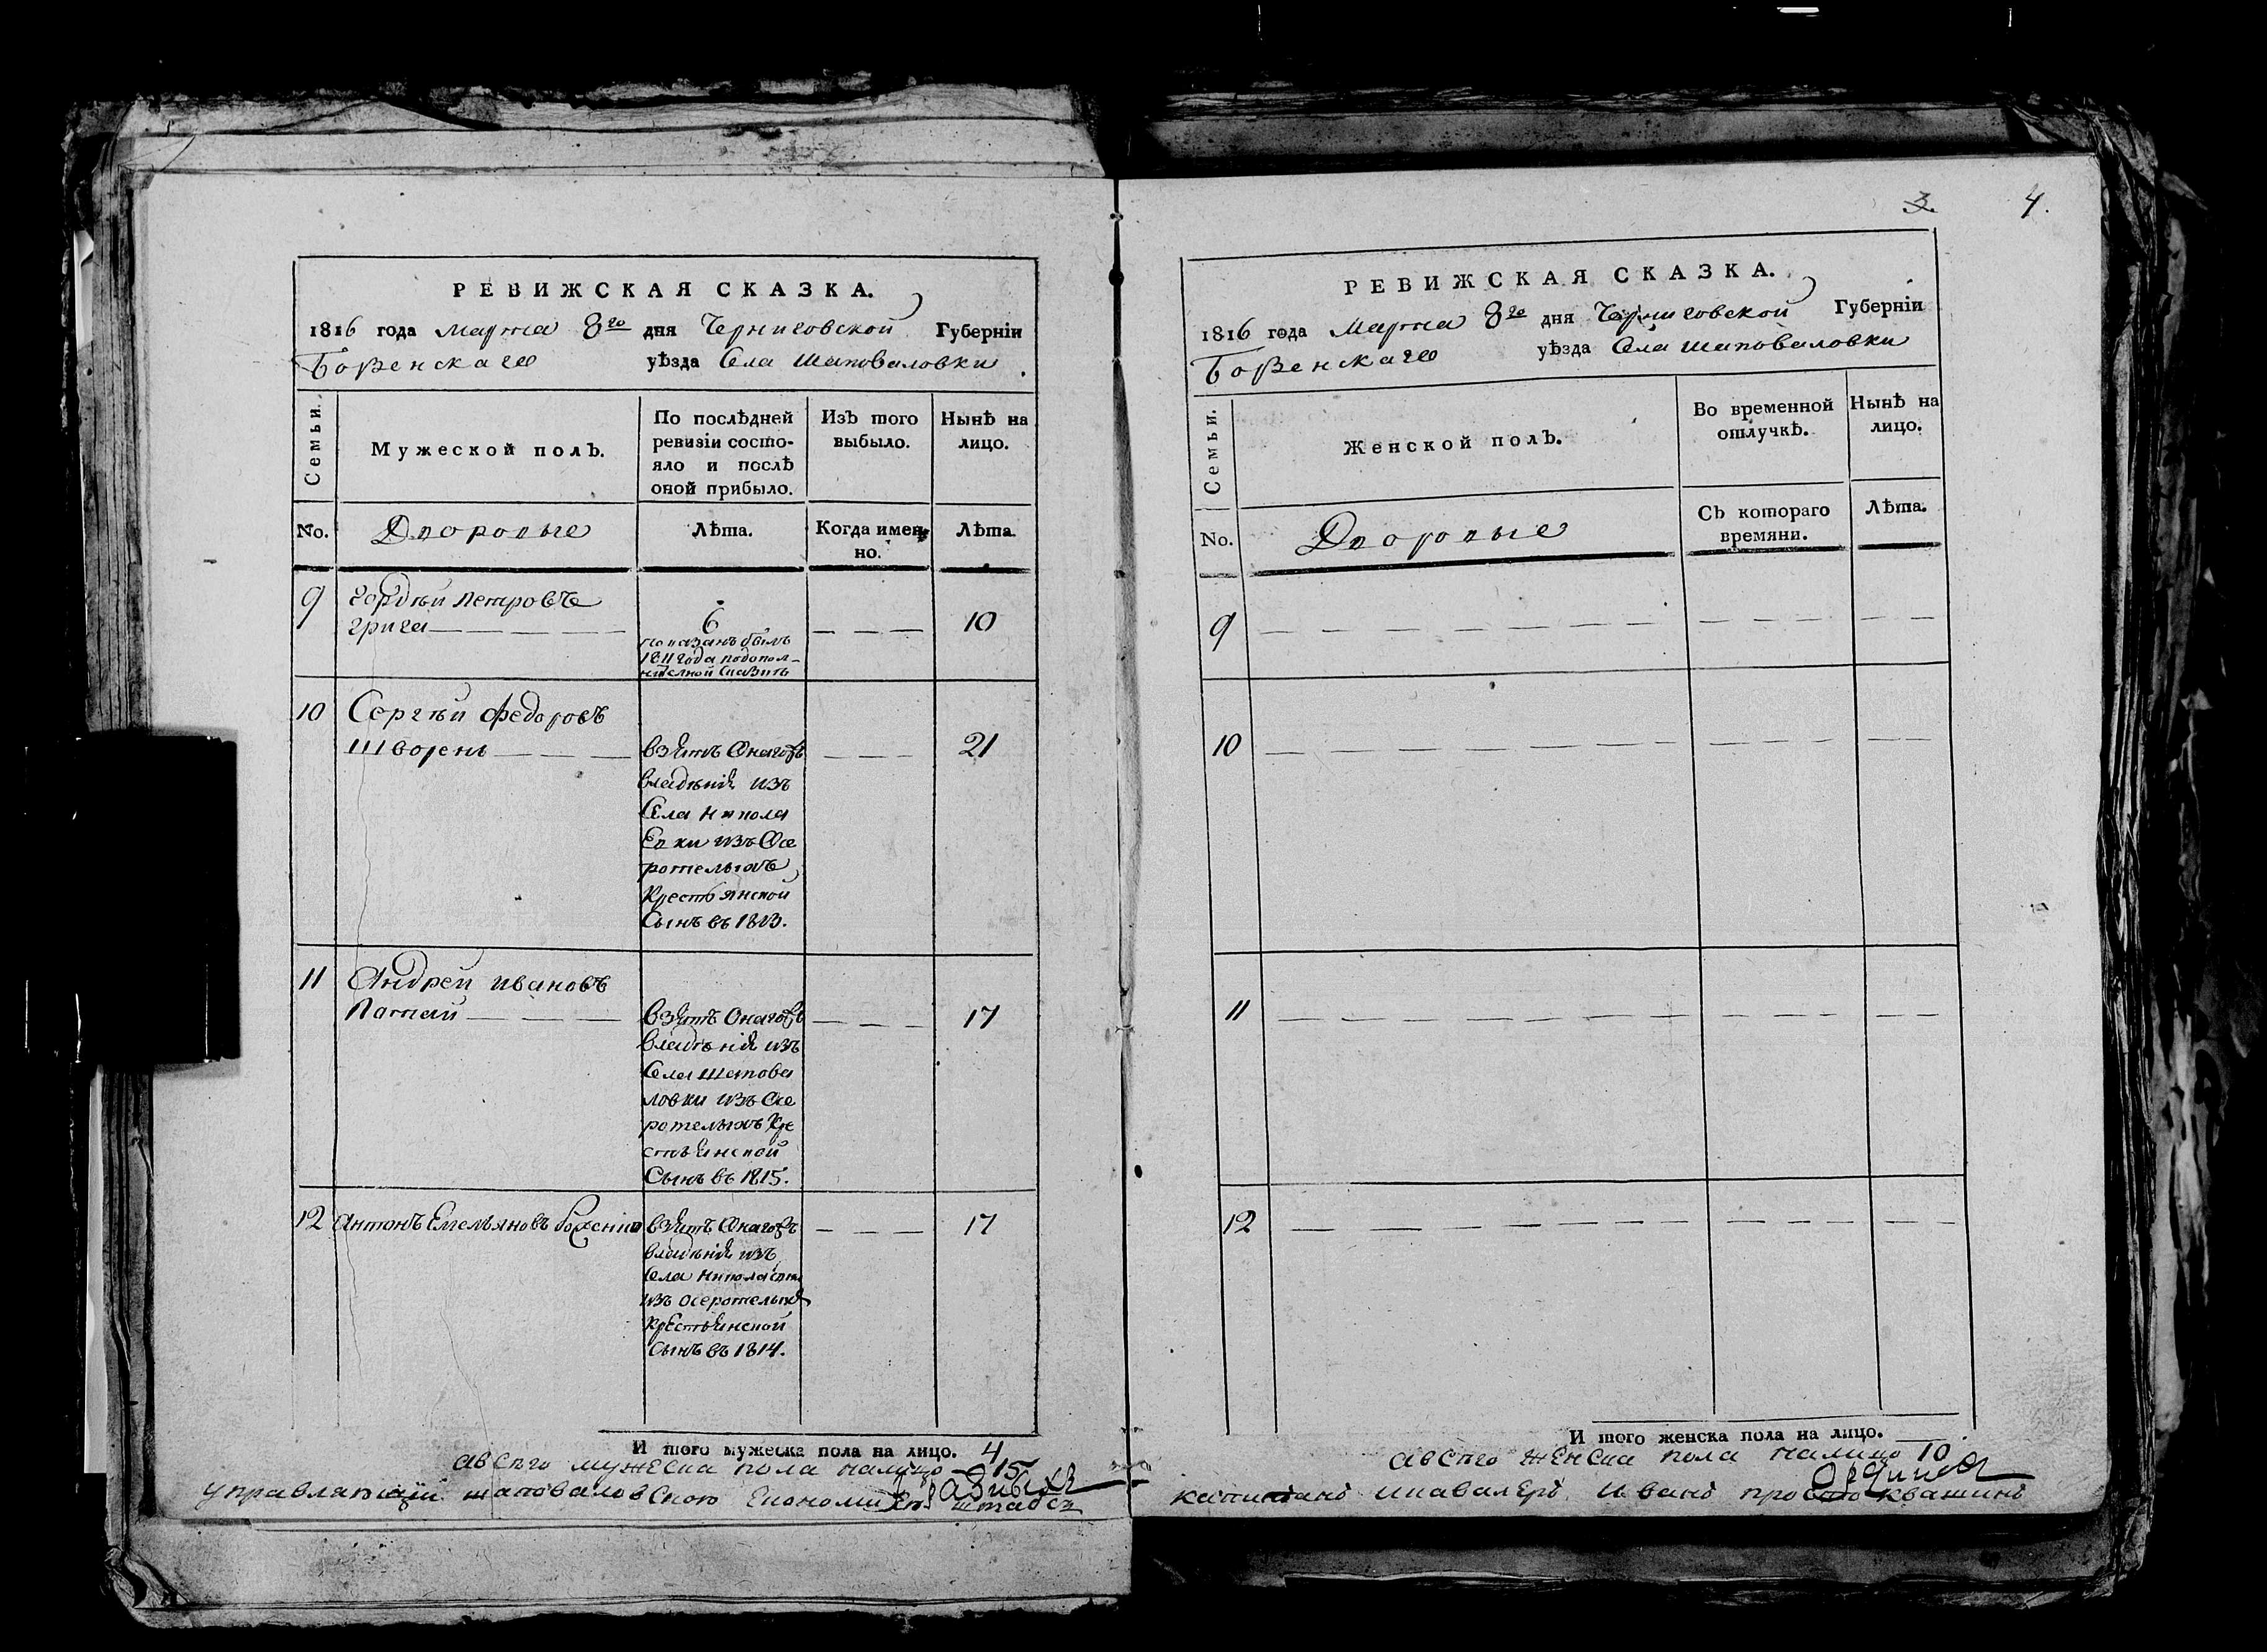 РЕВИЖСКАЯ СКАЗКА.
1816 года Марта 8го дня Черниговской Губерніи
Борзенскаго уѣзда Села Шаповаловки
Семьи.
Мужеской полъ.
По послѣдней
ревизіи состо-
яло и послѣ
оной прибыло.
Изъ того
выбыло.
Нынѣ на
лицо.
No.
Дворовые
Лѣта.
Когда имен-
но.
Лѣта.
9 Гордѣй Петровъ
Грига 6 10
показанъ былъ
1811 года подопол-
нителной Сказкѣ
10 Сергѣй Федоровъ
Шворень 21
взятъ Онагожъ
владѣнія изъ
Села Никола
Евки изъ Осе
ротелыхъ
Крестьянской
Сынъ въ 1813.
11 Андрей Ивановъ
Латай 17
взятъ Онагожъ
владѣнія изъ
Села Шапова
ловки изъ Осе
ротелыхъ Кре
стьянской
Сынъ въ 1815.
12 Антонъ Емельяновъ 17
взятъ Онагожъ
владѣнія изъ
Села
изъ Осеротелыхъ
Крестьянской
Сынъ въ 1814.
И того мужеска пола на лицо. 4
Авсего мужеска пола налицо 15
Управляющій Шаповаловскою Економіею штабсъ
3. 4.
РЕВИЖСКАЯ СКАЗКА.
1816 года Марта 8го дня Черниговской Губерніи
Борзенскаго уѣзда Села Шаповаловки
Семьи.
Женской полъ.
Во временной
отлучкѣ.
Нынѣ на
лицо.
No.
Дворовые
Съ котораго
времяни.
Лѣта.
9
10
11
12
И того женска пола на лицо.
Авсего женска пола налицо 10
капитанъ икавалеръ Иванъ просто квашинъ